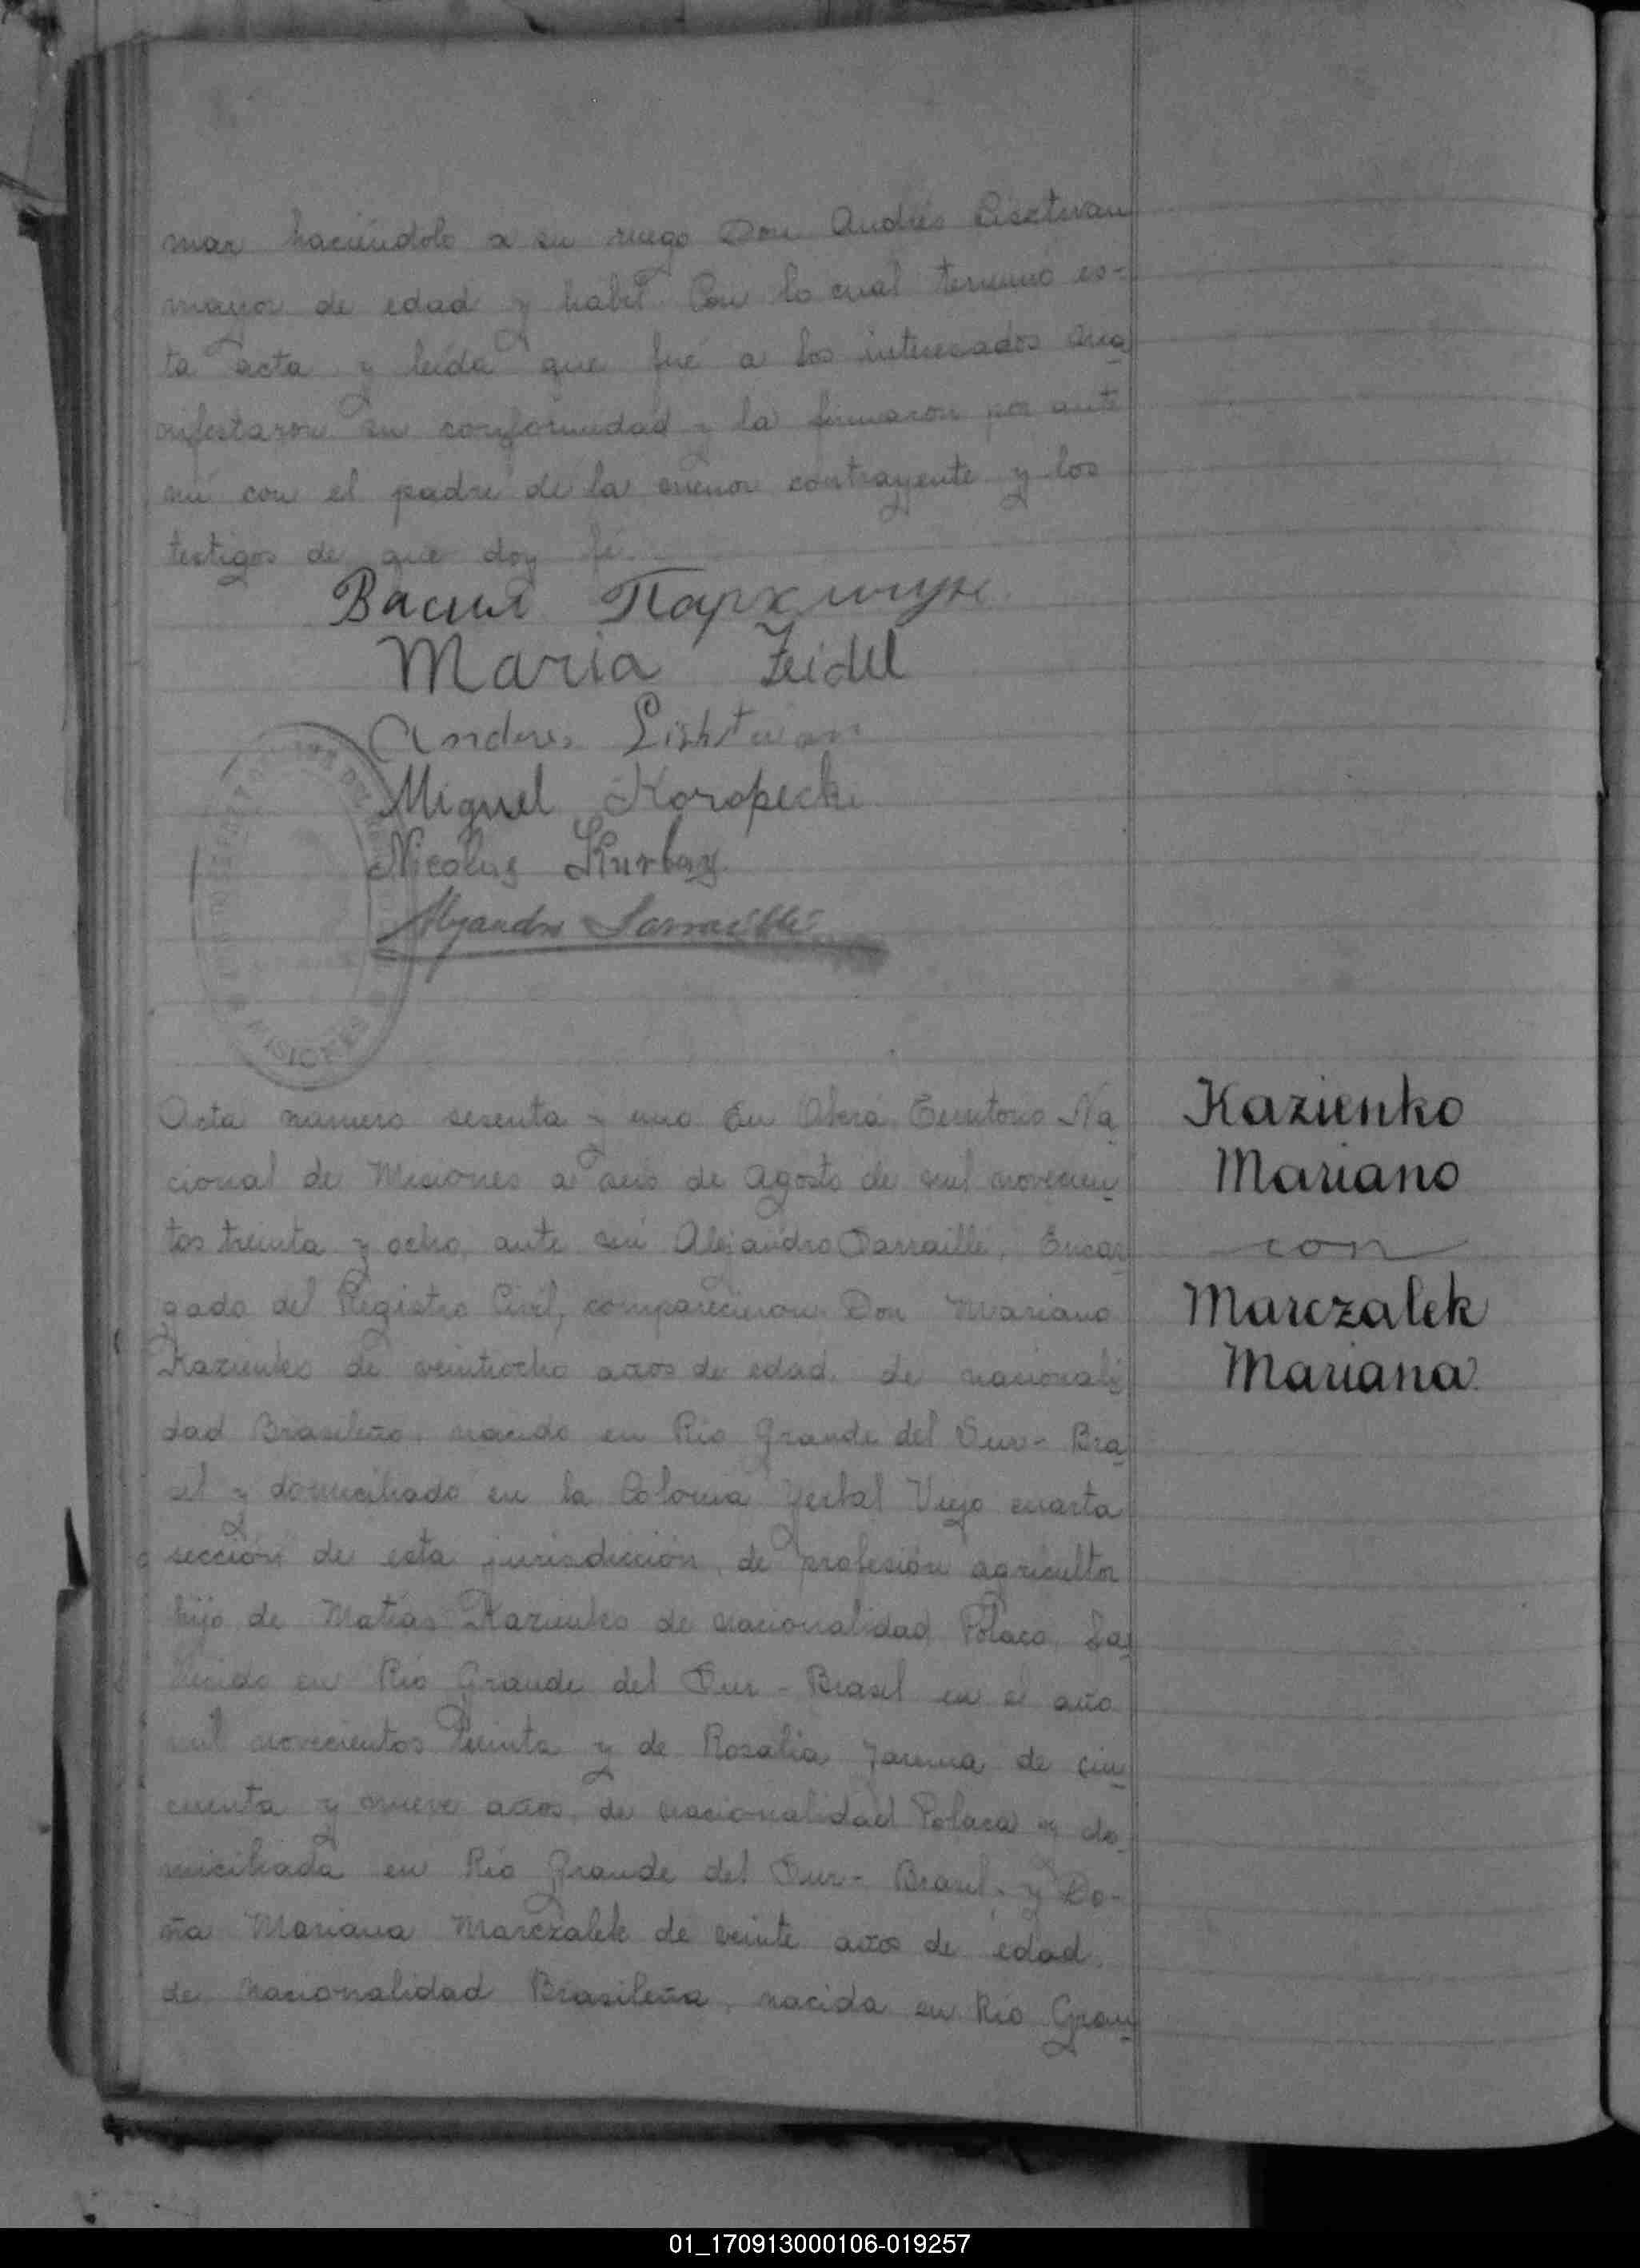 mar haciéndolo a su ruego Don Andrés Lisztwan
mayor de edad y habil Con lo cual termino es-
ta acta y leída que fué a los interesados ma
nifestaron su conformidad y la firmaron por ante
mí con el padre de la menor contrayente y los
testigos de que doy fé.
Васил Пархищук
Maria Zeidel
Andres Lishtwan
Miguel Koropecki
Nicolas Kurbay
Alejandro Sarraillé
MISIONES
Acta número sesenta y uno En Oberá, Territorio Na
cional de Misiones a seis de Agosto de mil novecien
tos treinta y ocho, ante mí Alejandro Sarraillé, Encar
gado del Registro Civil, comparecieron Don Mariano
Kazienko de veintiocho años de edad, de nacionali
dad Brasileño, nacido en Río Grande del Sur - Bra
sil y domiciliado en la Colonia Yerbal Viejo cuarta
sección de esta jurisdicción, de profesión agricultor
hijo de Matías Kazienko de nacionalidad Polaco, fa
llecido en Río Grande del Sur - Brasil en el año
mil novecientos treinta y de Rosalia Jarema de cin
cuenta y nueve años, de nacionalidad Polaca y do
miciliada en Río Grande del Sur - Brasil, y Do-
ña Mariana Marczalek de veinte años de edad,
de nacionalidad Brasileña, nacida en Río Gran
Kazienko
Mariano
con
Marczalek
Mariana
01_170913000106-019257